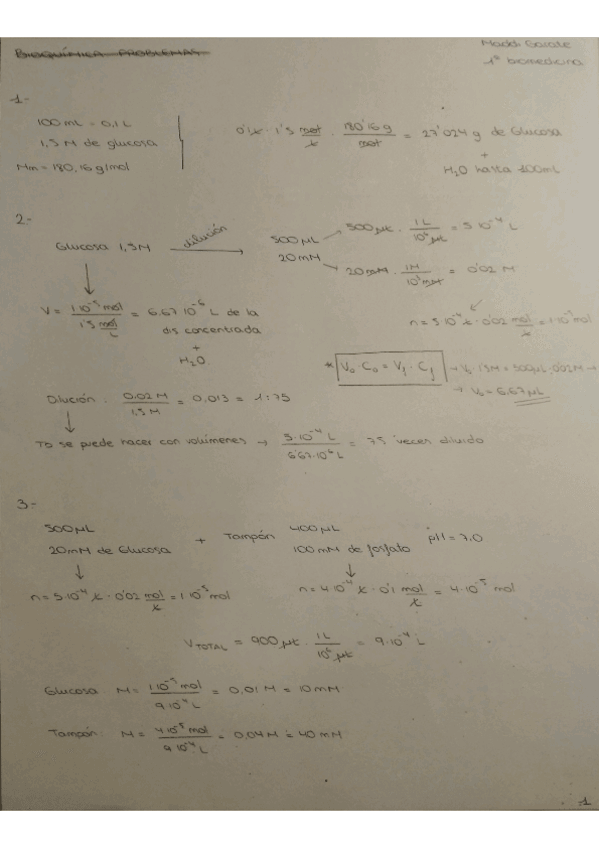 BIOQUÍMICA PROBLEMAS
1º biomedicina
1-
100 mL = 0,1 L
1,5 M de glucosa
Mm = 180,16 g/mol
0'1 L · 1'5 mol/L · 180'16 g/mol = 27'024 g de Glucosa
+
H2O hasta 100mL
2-
Glucosa 1,5M
dilución
500 μL
20 mM
500 μL · 1L/10^6 μL = 5·10^-4 L
20 mM · 1M/10^3 mM = 0'02 M
V = 1·10^-5 mol / 1'5 mol/L = 6,67·10^-6 L de la
dis concentrada
+
H2O
n = 5·10^-4 L · 0'02 mol/L = 1·10^-5 mol
* V0 · C0 = Vf · Cf → V0 · 1'5M = 500μL · 0'02M →
→ V0 = 6,67 μL
Dilución: 0,02 M / 1,5 M = 0,013 = 1:75
Tb se puede hacer con volúmenes → 5·10^-4 L / 6'67·10^-6 L = 75 veces diluido
3-
500 μL
20 mM de Glucosa
+ Tampón
400 μL
100 mM de fosfato
pH = 7.0
n = 5·10^-4 L · 0'02 mol/L = 1·10^-5 mol
n = 4·10^-4 L · 0'1 mol/L = 4·10^-5 mol
VTOTAL = 900 μL · 1L/10^6 μL = 9·10^-4 L
Glucosa M = 1·10^-5 mol / 9·10^-4 L = 0,01 M = 10 mM
Tampón M = 4·10^-5 mol / 9·10^-4 L = 0,04 M = 40 mM
1